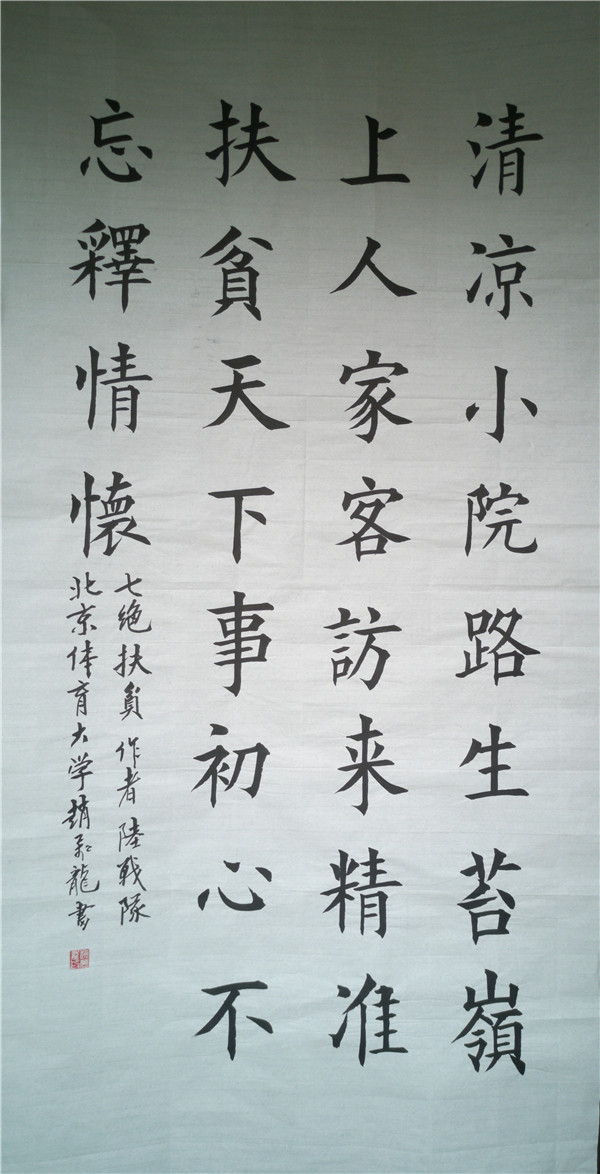 清凉小院路生苔嶺
上人家客訪来精准
扶貧天下事初心不
忘釋情懷
七绝 扶貧 作者 陸戰隊
北京体育大学趙龍書